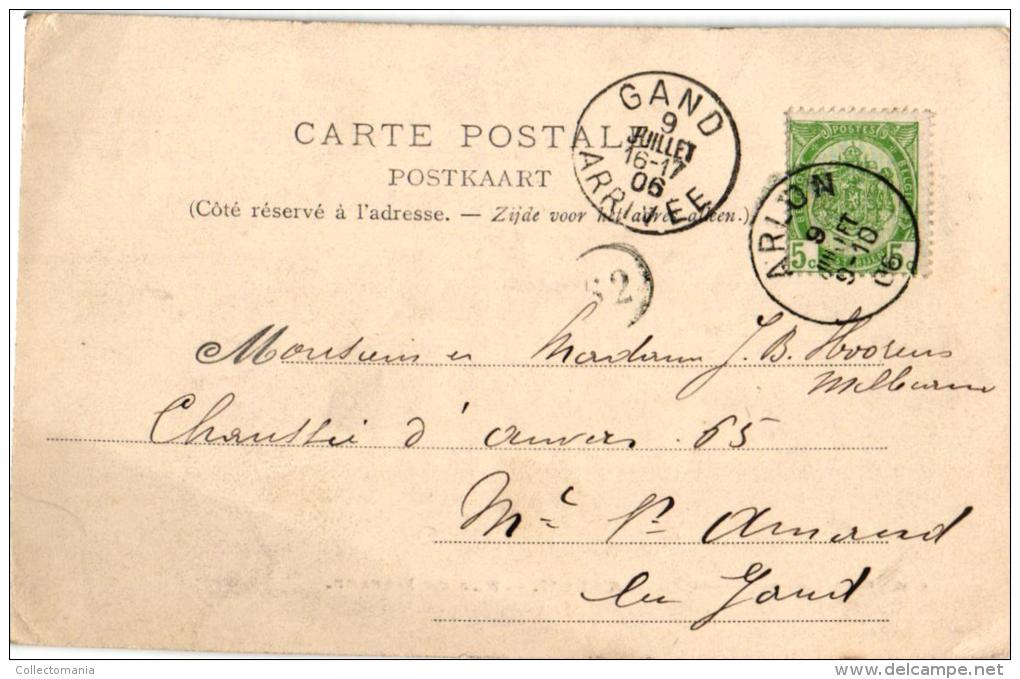 GAND
9
JUILLET
16-17
06
ARRIVEE
CARTE POSTALE
POSTKAART
(Côté réservé à l'adresse. — Zijde voor het adres alleen.)
POSTES
5c 5c
ARLON
9
JUILLET
9-10
06
62
Monsieur et Madame J. B. Hoorens
Chaussée d'anvers 65
Mt St Amand
lez Gand
Collectomania
www.delcampe.net